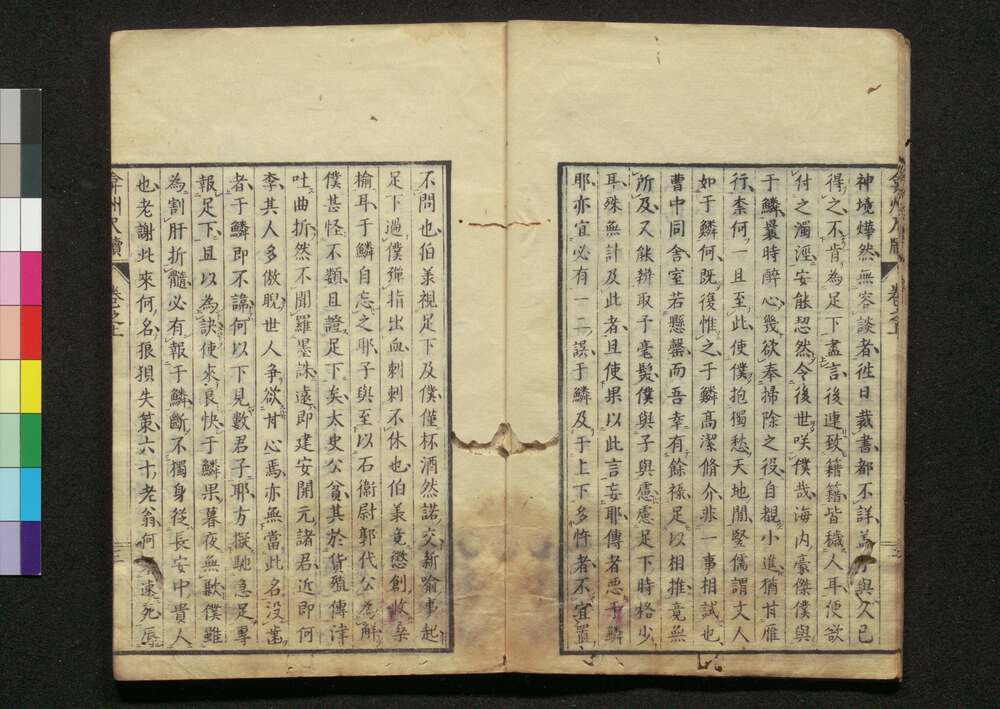 神境燁然無容談者徃日裁書都不詳盖子與久已
得之不肯為足下盡言後連致籍籍皆穢人耳便欲
付之濁涇安能恝然令後世咲僕哉海内豪傑僕與
于鱗曩時醉心幾欲奉掃除之役自覩小進猶甘雁
行柰何一旦至此使僕抱獨愁天地閒堅儒謂文人
如于鱗何既後惟之于鱗高潔脩介非一事相試也
曹中同舎室若懸罄而吾幸有餘祿足以相推竟無
所及又能辨取予毫髪僕與子與慮慮足下時格少
耳殊無計及此者且使果以此言妄耶傳者悪于鱗
耶亦宜必有一二誤于鱗及于上下多忤者不宜置
不問也伯羙視足下及僕僅杯酒然諾交新喻事起
足下過僕殫指出血刺刺不休也伯羙竟懲創收桑
榆耳于鱗自忘之耶子與至以石衛尉郭代公為解
僕甚怪不類且證足下矣太史公貧其於貨殖傳津
吐曲折然不聞羅墨誅遠即建安開元諸君近即何
李其人多傲睨世人争欲甘心焉亦無當此名没蓋
者于鱗即不諱何以下見數君子耶方擬馳急足專
報足下且以為訣使來良快于鱗果暮夜無歉僕雖
為割肝折髓必有報于鱗斷不獨身従長安中貴人
也老謝此來何名狼狽失策六十老翁何速死辱
弇州尺牘
卷之上